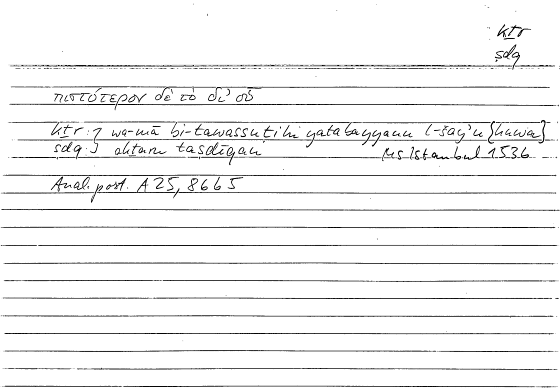 kṯr
ṣdq
πιστότερον δὲ τὸ δι' οὗ
kṯr: } wa-mā bi-tawassuṭihi yatabayyanu l-šayʾu {huwa}
ṣdq: } akṯaru taṣdīqan Ms Istanbul 1536
Anal. post. A 25, 86b5